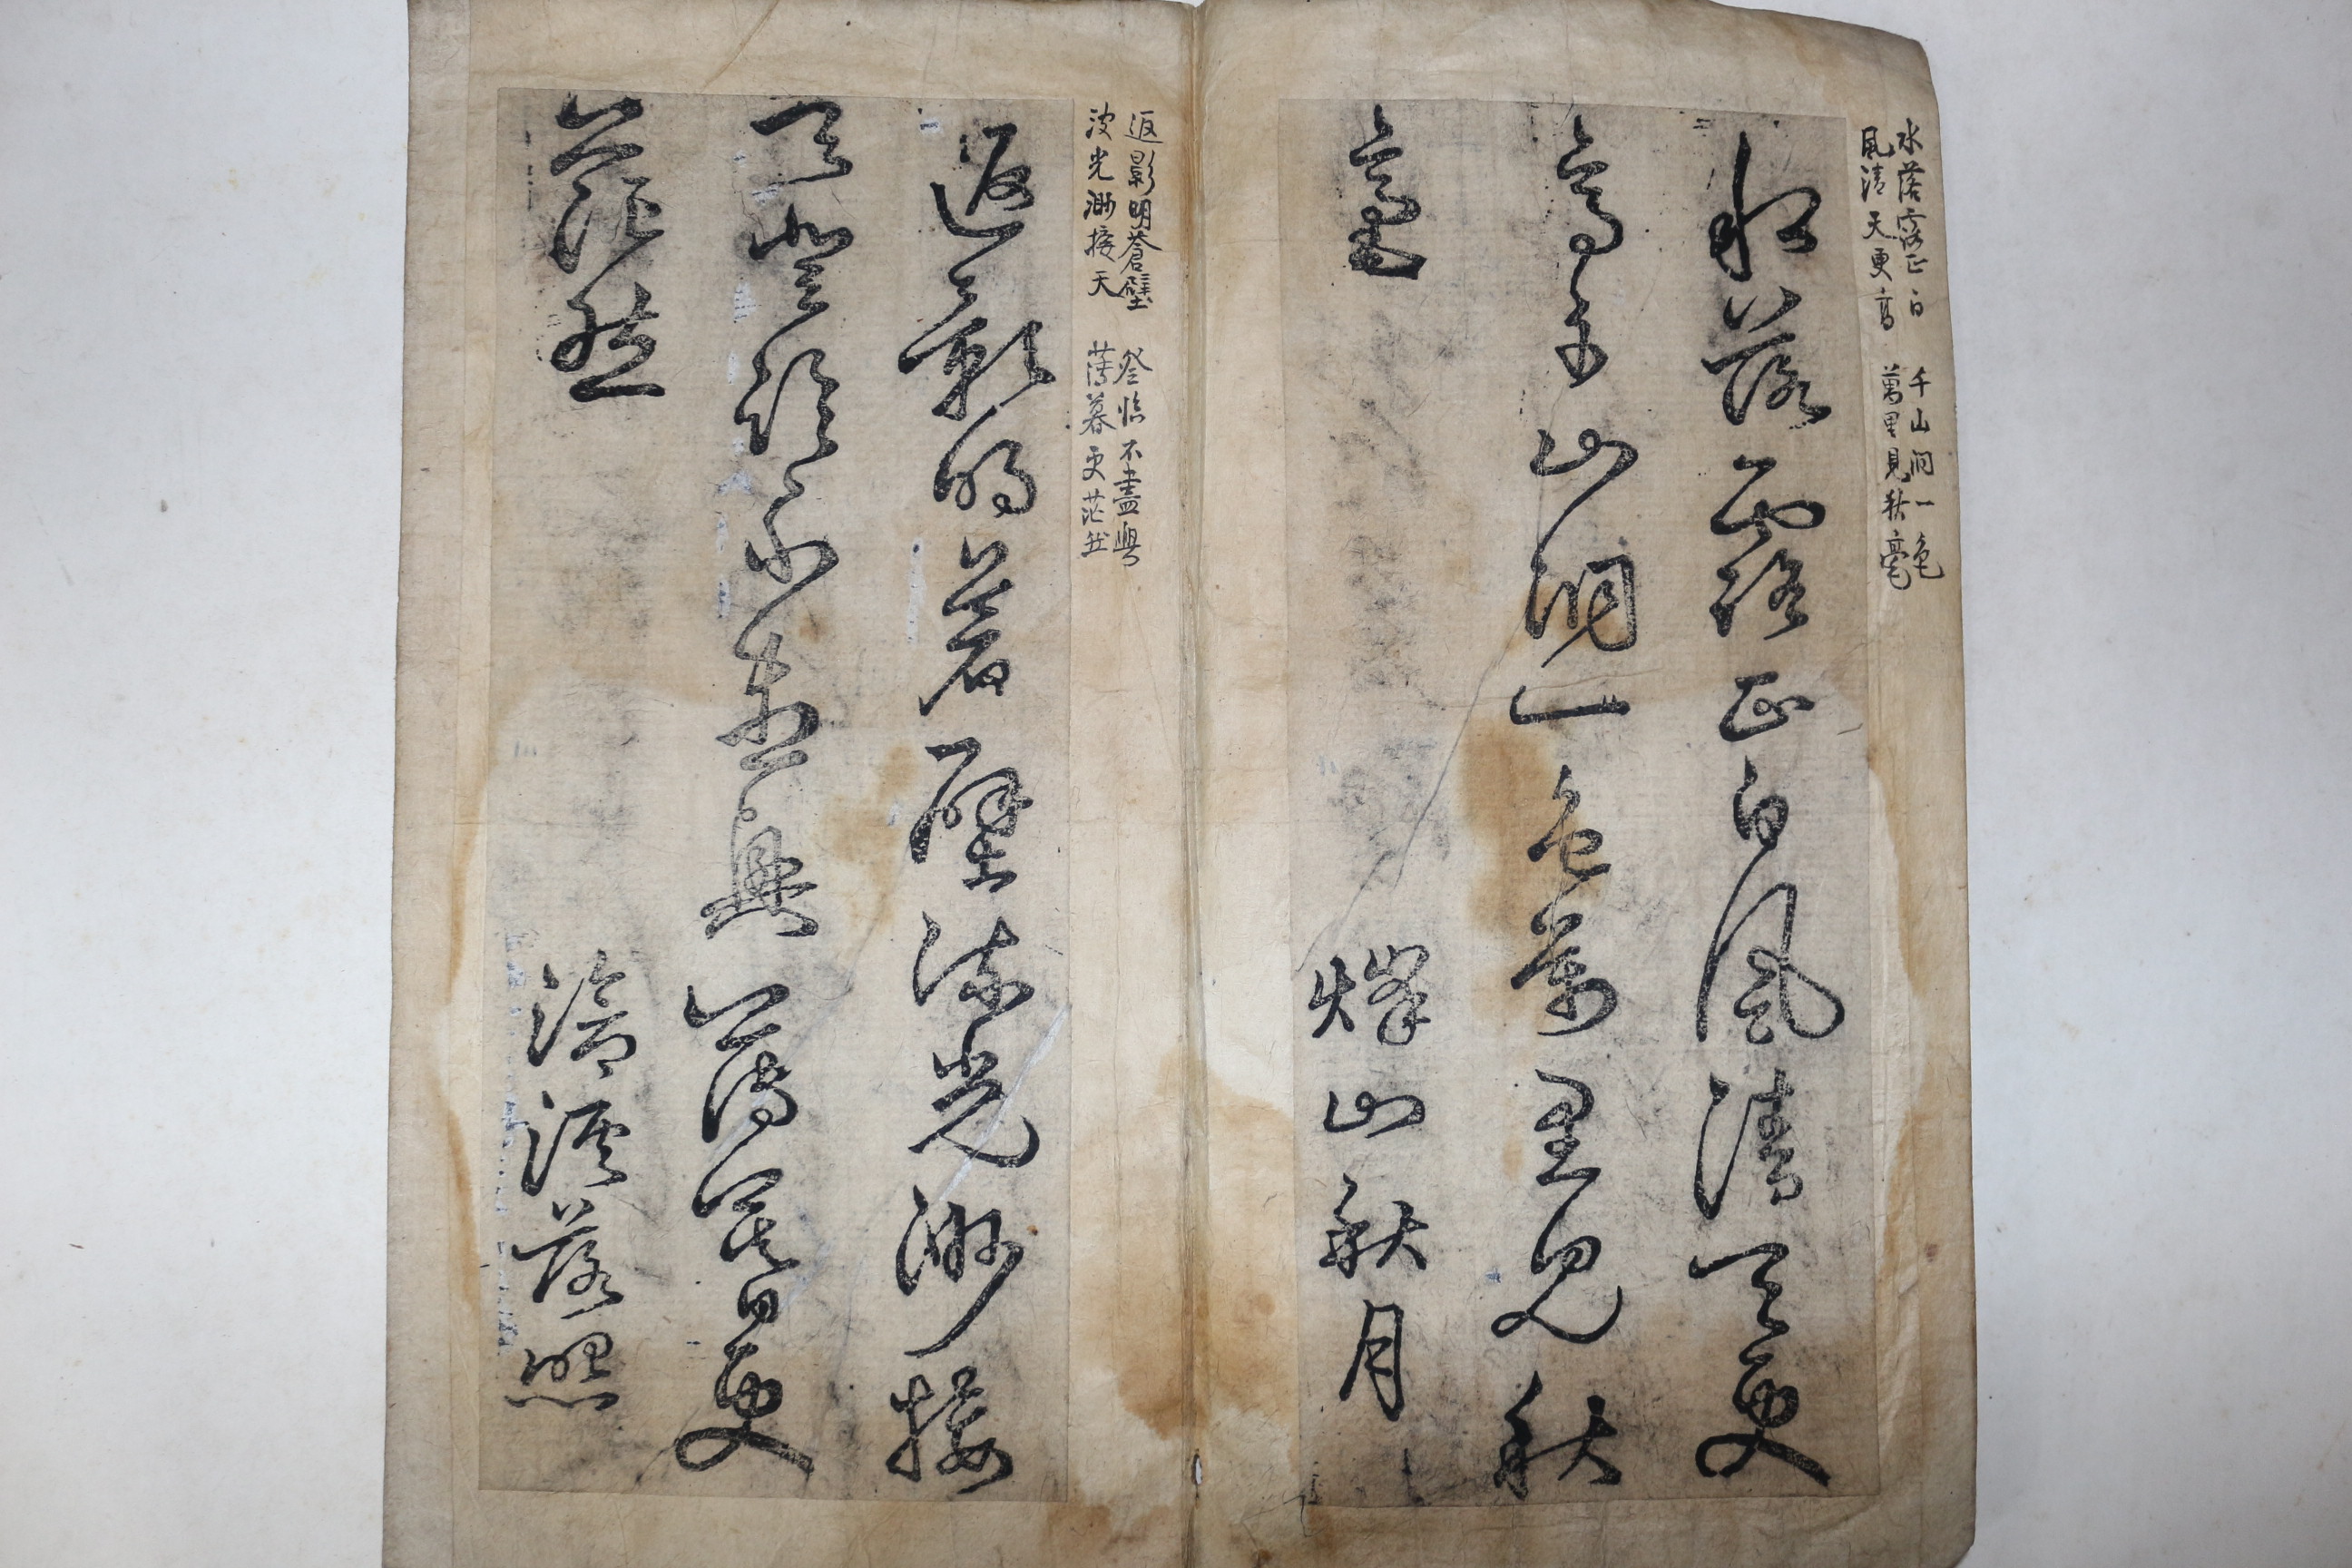 水落露正白 千山洞一色
風清天更高 萬里見秋毫
落露正白風清天更
高千山洞一色萬里見秋
毫 烽山秋月
返影明蒼壁 登臨不盡興
波光渺接天 薄暮更茫然
返影明蒼壁光渺接
天登臨不盡興薄暮更
茫然 落照